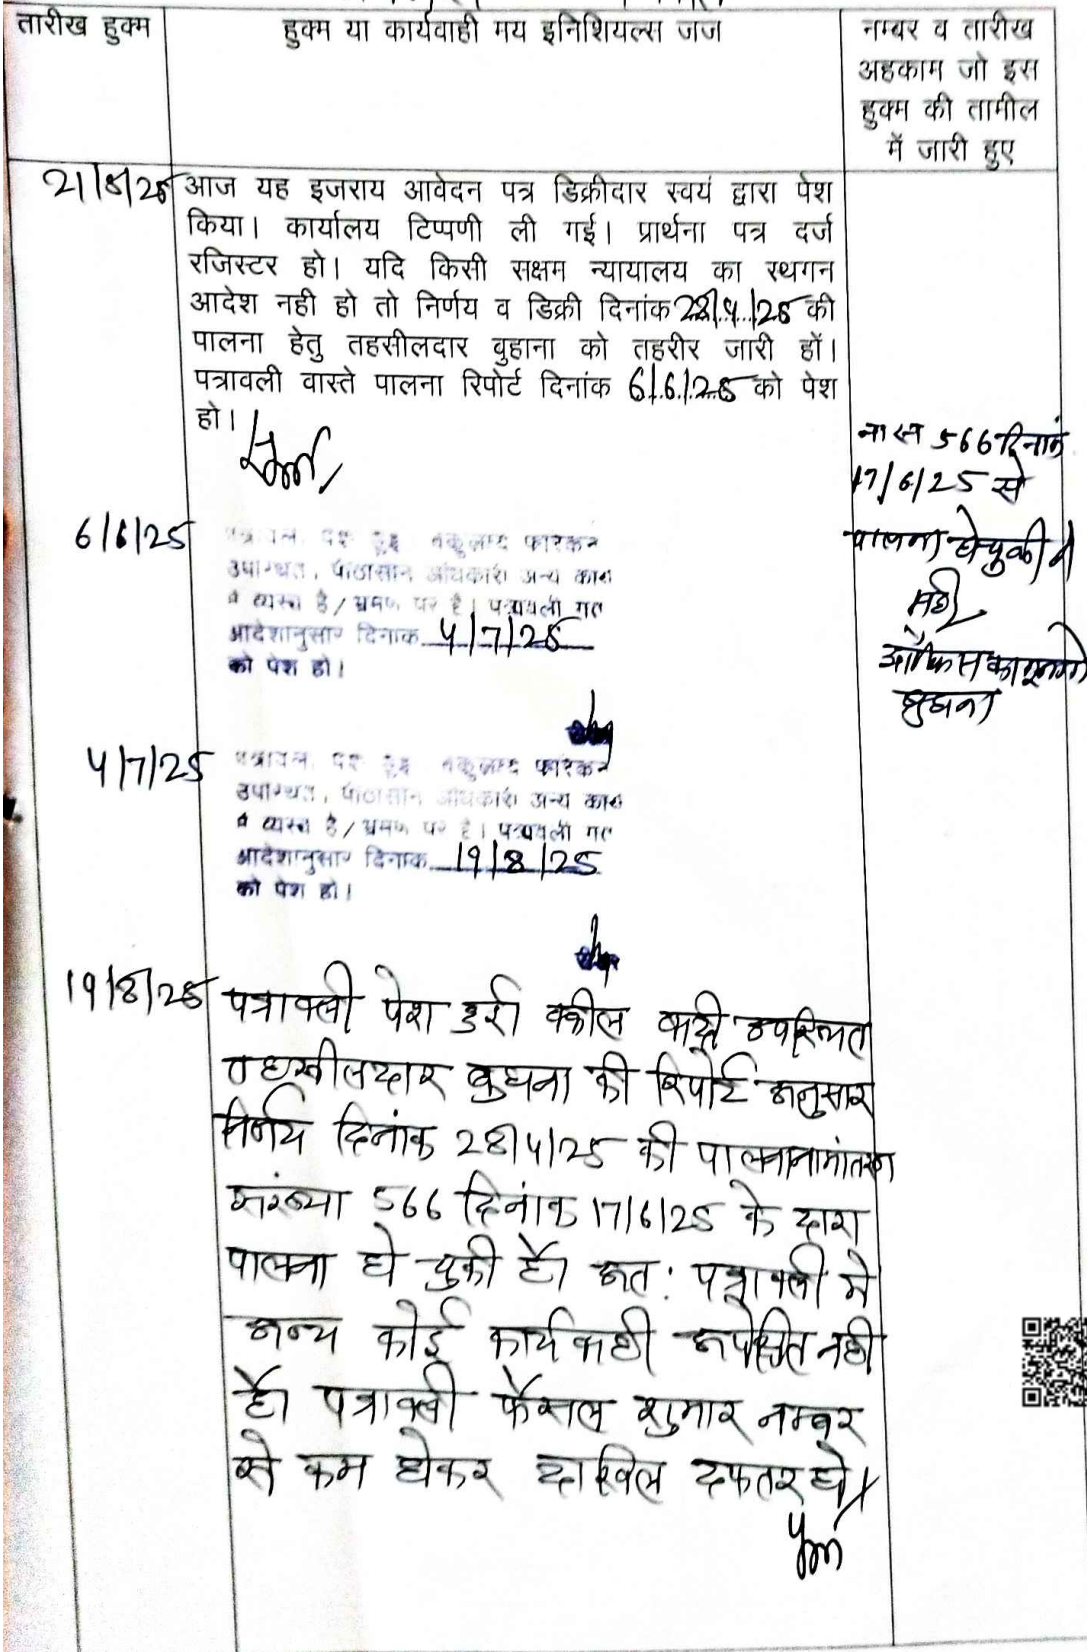 तारीख हुक्म
हुक्म या कार्यवाही मय इनिशियल्स जज
नम्बर व तारीख
अहकाम जो इस
हुक्म की तामील
में जारी हुए
21/5/25
आज यह इजराय आवेदन पत्र डिक्रीदार स्वयं द्वारा पेश
किया। कार्यालय टिप्पणी ली गई। प्रार्थना पत्र दर्ज
रजिस्टर हो। यदि किसी सक्षम न्यायालय का स्थगन
आदेश नही हो तो निर्णय व डिक्री दिनांक 28/4/25 की
पालना हेतु तहसीलदार बुहाना को तहरीर जारी हों।
पत्रावली वास्ते पालना रिपोर्ट दिनांक 6/6/25 को पेश
हो।
566 दिनांक
17/6/25 से
पालना हो चुकी है
सही
बुहाना
6/6/25
उपस्थित, पीठासीन अधिकारी अन्य कार्य
में व्यस्त है / भ्रमण पर है। पत्रावली गत
आदेशानुसार दिनांक 4/7/25
को पेश हो।
4/7/25
उपस्थित, पीठासीन अधिकारी अन्य कार्य
में व्यस्त है / भ्रमण पर है। पत्रावली गत
आदेशानुसार दिनांक 19/8/25
को पेश हो।
19/8/25
पत्रावली पेश हुई वकील वादी उपस्थित
तहसीलदार बुहाना की रिपोर्ट अनुसार
निर्णय दिनांक 28/4/25 की पालना नामांतरण
संख्या 566 दिनांक 17/6/25 के द्वारा
पालना हो चुकी है। अत: पत्रावली मे
अन्य कोई कार्यवाही अपेक्षित नही
है। पत्रावली फैसल शुमार नम्बर
से कम होकर दाखिल दफ्तर हो।